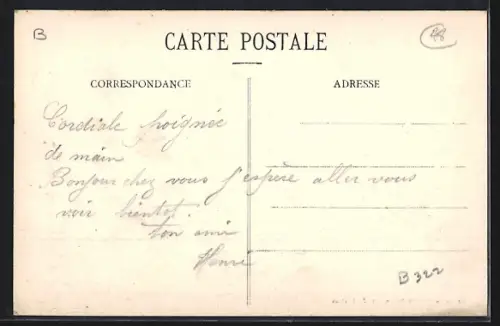 B
88
CARTE POSTALE
CORRESPONDANCE
ADRESSE
Cordiale poignée
de main
Bonjour chez vous j'espère aller vous
voir bientot.
ton ami
Henri
B322